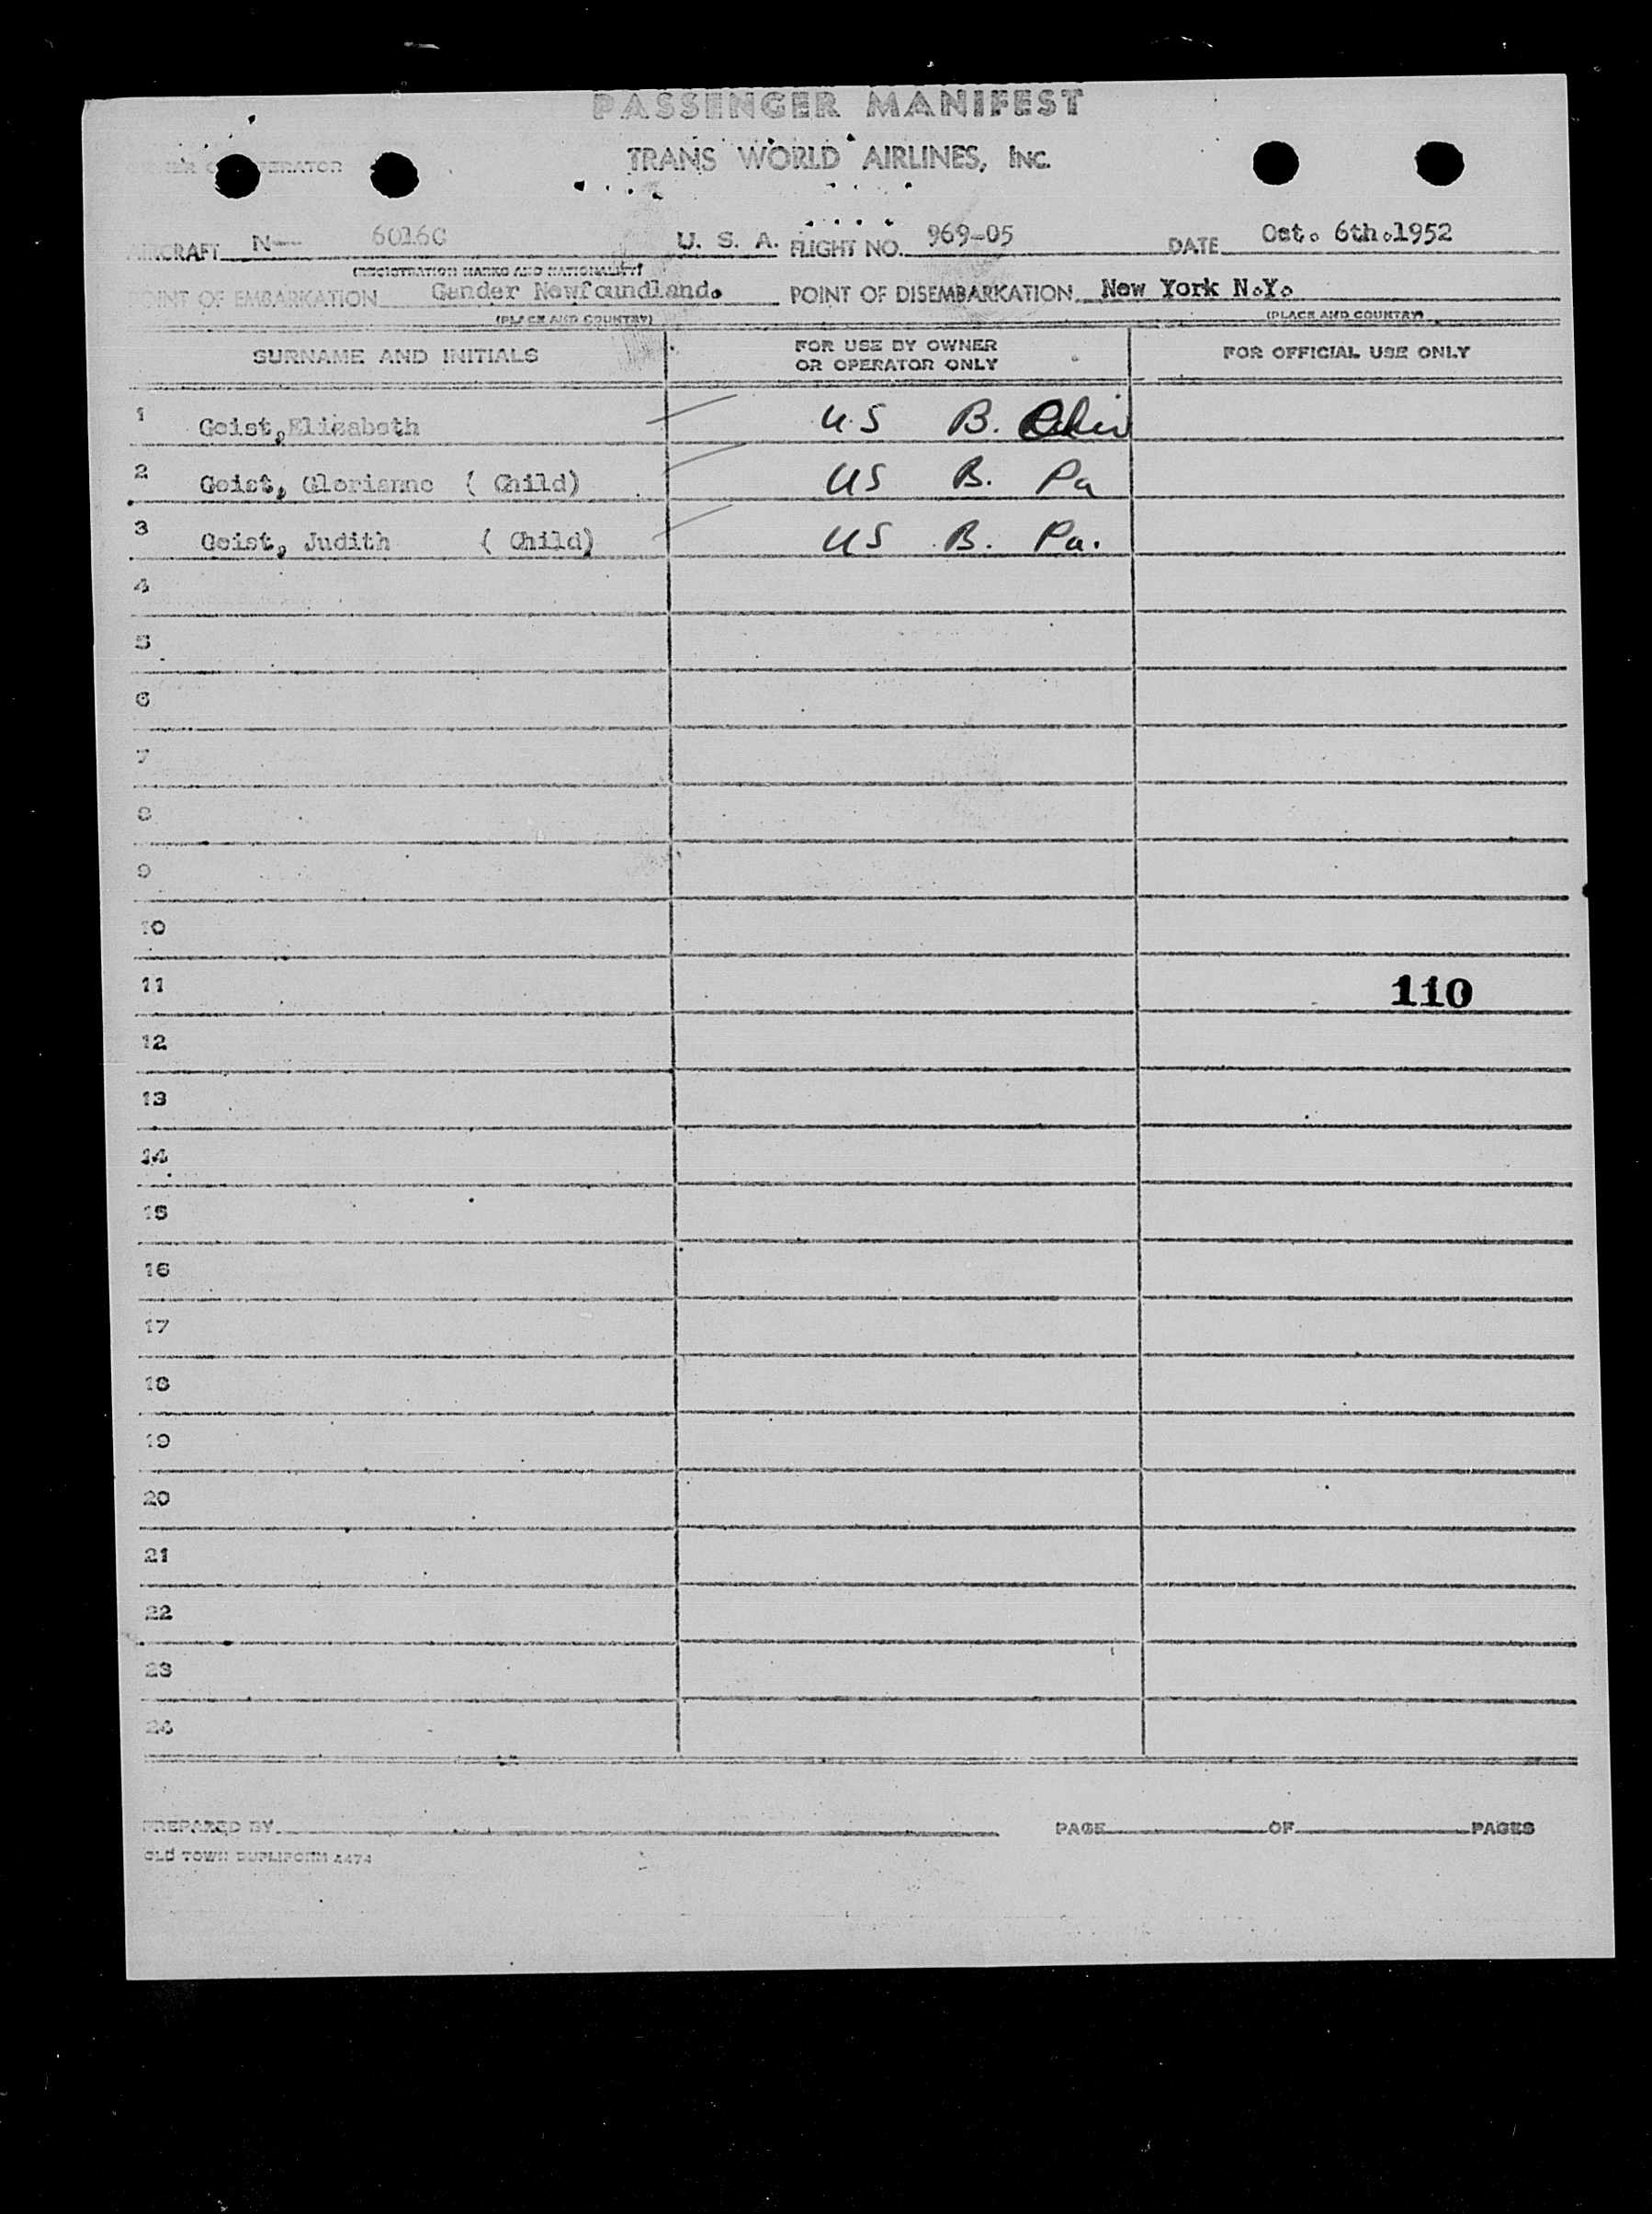 PASSENGER MANIFEST
TRANS WORLD AIRLINES, INC.
AIRCRAFT N— 6016C U. S. A. FLIGHT NO. 969-05 DATE Oct. 6th.1952
(REGISTRATION MARKS AND NATIONALITY)
POINT OF EMBARKATION Gander Newfoundland. POINT OF DISEMBARKATION New York N.Y.
(PLACE AND COUNTRY) (PLACE AND COUNTRY)
SURNAME AND INITIALS FOR USE BY OWNER OR OPERATOR ONLY FOR OFFICIAL USE ONLY
1 Geist,Elisabeth U.S B.
2 Geist, Glorianne ( Child) US B. Pa
3 Geist, Judith ( Child) US B. Pa.
4
5
6
7
8
9
10
11 110
12
13
14
15
16
17
18
19
20
21
22
23
24
PREPARED BY PAGE OF PAGES
OLD TOWN DUPLIFORM 4474